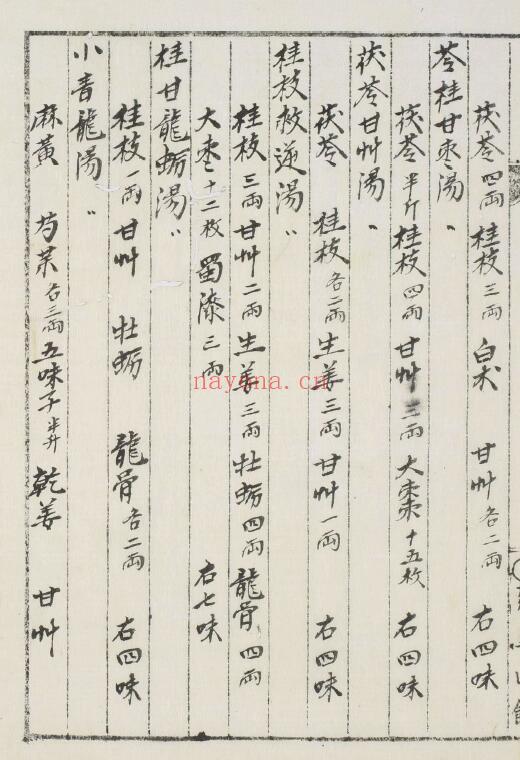 茯苓四兩 桂枝三兩 白朮 甘艸各二兩 右四味
苓桂甘枣湯〃
茯苓半斤 桂枝四兩 甘艸三兩 大棗十五枚 右四味
茯苓甘艸湯〃
茯苓 桂枝各二兩 生姜三兩 甘艸一兩 右四味
桂枝救逆湯〃
桂枝三兩 甘艸二兩 生姜三兩 牡蛎四兩 龍骨四兩
大枣十二枚 蜀漆三兩 右七味
桂甘龍蛎湯〃
桂枝一兩 甘艸 牡蛎 龍骨各二兩 右四味
小青龍湯〃
麻黃 芍藥各三兩 五味子半升 乾姜 甘艸
nayona.cn